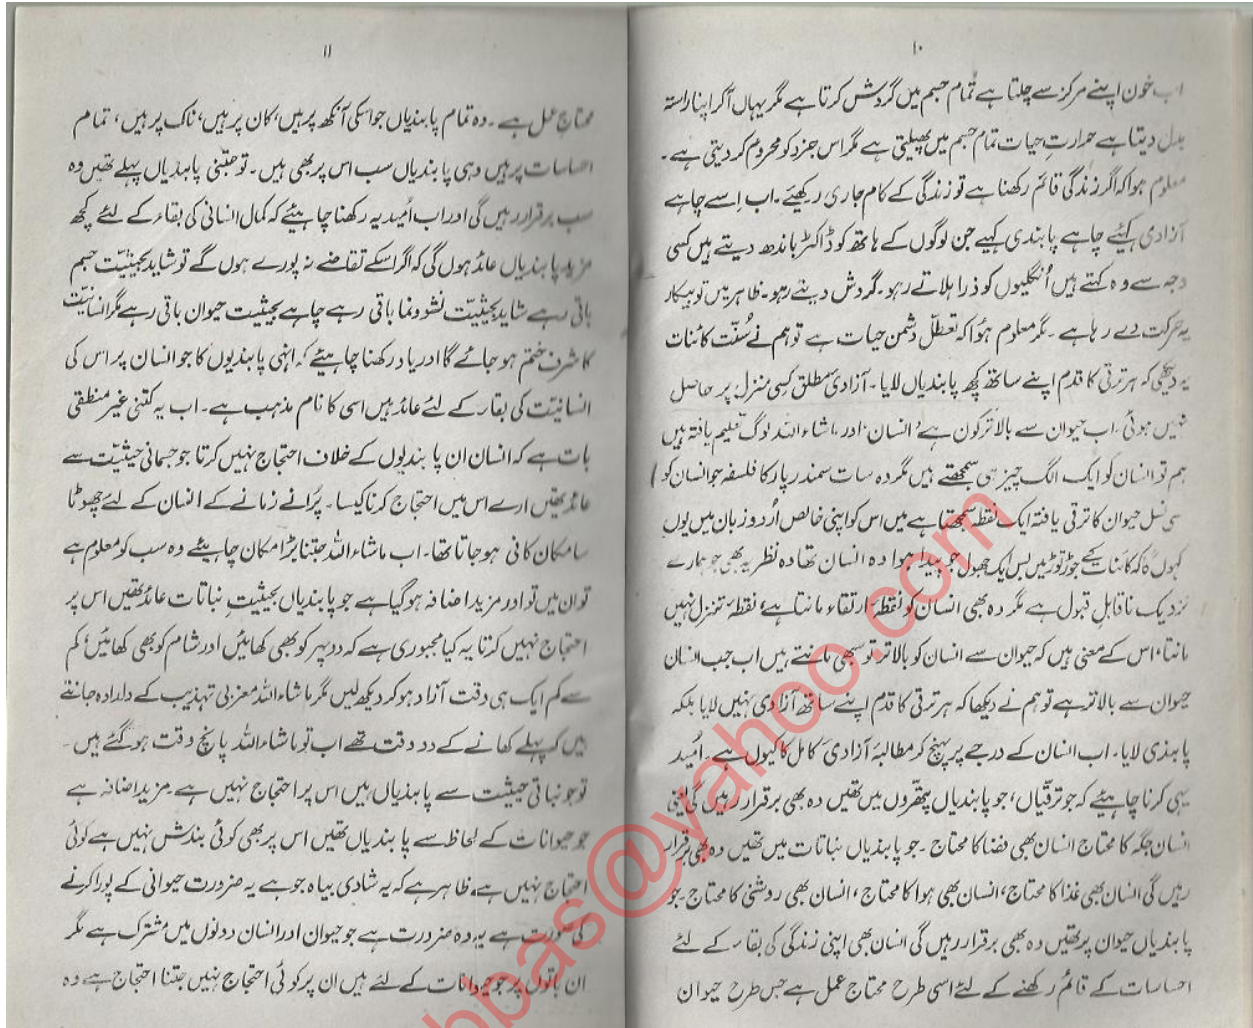 ۱۰
اب خون اپنے مرکز سے چلتا ہے تمام جسم میں گردش کرتا ہے مگر یہاں آکر اپنا راستہ
بدل دیتا ہے حرارتِ حیات تمام جسم میں پھیلتی ہے مگر اس جزو کو محروم کر دیتی ہے۔
معلوم ہوا کہ اگر زندگی قائم رکھنا ہے تو زندگی کے کام جاری رکھیئے۔ اب اِسے چاہے
آزادی کہیئے چاہے پابندی کہیے جن لوگوں کے ہاتھ کو ڈاکٹر باندھ دیتے ہیں کسی
وجہ سے وہ کہتے ہیں اُنگلیوں کو ذرا ہلاتے رہو۔ گردش دیئے رہو۔ ظاہر میں تو بیکار
یہ حرکت دے رہا ہے۔ مگر معلوم ہوا کہ تعطّل دشمن حیات ہے تو ہم نے سُنّت کائنات
یہ دیکھی کہ ہر ترقی کا قدم اپنے ساتھ کچھ پابندیاں لایا۔ آزادی مطلق کسی منزل پر حاصل
نہیں ہوئی۔ اب حیوان سے بالاتر کون ہے؟ انسان۔ اور ماشاء اللہ لوگ تعلیم یافتہ ہیں
ہم تو انسان کو ایک الگ چیز ہی سمجھتے ہیں مگر وہ سات سمندر پار کا فلسفہ جو انسان کو
سی نسل حیوان کا ترقی یافتہ ایک نقطہ سمجھتا ہے میں اس کو اپنی خالص اُردو زبان میں یوں
کہوں گا کہ کائنات کے جوڑ توڑ میں بس ایک جھول جو پیدا ہوا وہ انسان تھا وہ نظریہ بھی جو ہمارے
نزدیک ناقابلِ قبول ہے مگر وہ بھی انسان کو نُقطۂ ارتقاء مانتا ہے، نقطۂ تنزل نہیں
مانتا، اس کے معنی ہیں کہ حیوان سے انسان کو بالاتر تو سبھی مانتے ہیں اب جب انسان
حیوان سے بالاتر ہے تو ہم نے دیکھا کہ ہر ترقی کا قدم اپنے ساتھ آزادی نہیں لایا بلکہ
پابندی لایا۔ اب انسان کے درجے پر پہنچ کر مطالبۂ آزادیٔ کامل کا کیوں ہے۔ اُمید
یہی کرنا چاہیئے کہ جو ترقیّاں، جو پابندیاں پتھّروں میں تھیں وہ بھی برقرار رہیں گی یعنی
انسان جگہ کا محتاج انسان بھی فضا کا محتاج۔ جو پابندیاں نباتات میں تھیں وہ بھی برقرار
رہیں گی انسان بھی غذا کا محتاج، انسان بھی ہوا کا محتاج، انسان بھی روشنی کا محتاج۔ جو
پابندیاں حیوان پر تھیں وہ بھی برقرار رہیں گی انسان بھی اپنی زندگی کی بقاء کے لئے
احساسات کے قائم رکھنے کے لئے اسی طرح محتاج عمل ہے جس طرح حیوان
۱۱
محتاجِ عمل ہے۔ وہ تمام پابندیاں جو اسکی آنکھ پر ہیں، کان پر ہیں، ناک پر ہیں، تمام
احساسات پر ہیں وہی پابندیاں سب اس پر بھی ہیں۔ تو جتنی پابندیاں پہلے تھیں وہ
سب برقرار رہیں گی اور اب اُمید یہ رکھنا چاہیئے کہ کمال انسانی کی بقاء کے لئے کچھ
مزید پابندیاں عائد ہوں گی کہ اگر اسکے تقاضے نہ پورے ہوں گے تو شاید بحیثیت جسم
باقی رہے شاید بحیثیّت نشوونما باقی رہے چاہے بحیثیت حیوان باقی رہے مگر انسانیّت
کا شرف ختم ہو جائے گا اور یاد رکھنا چاہیئے کہ انہی پابندیوں کا جو انسان پر اس کی
انسانیّت کی بقاء کے لئے عائد ہیں اسی کا نام مذہب ہے۔ اب یہ کتنی غیر منطقی
بات ہے کہ انسان ان پابندیوں کے خلاف احتجاج نہیں کرتا جو جسمانی حیثیّت سے
عائد تھیں ارے اس میں احتجاج کرنا کیسا۔ پُرانے زمانے کے انسان کے لئے چھوٹا
سا مکان کافی ہو جاتا تھا۔ اب ماشاء اللہ جتنا بڑا مکان چاہیئے وہ سب کو معلوم ہے
تو ان میں تو اور مزید اضافہ ہو گیا ہے جو پابندیاں بحیثیتِ نباتات عائد تھیں اس پر
احتجاج نہیں کرتا یہ کیا مجبوری ہے کہ دوپہر کو بھی کھائیں اور شام کو بھی کھائیں! کم
سے کم ایک ہی وقت آزاد ہو کر دیکھ لیں مگر ماشاء اللہ مغربی تہذیب کے دلدادہ جانتے
ہیں کہ پہلے کھانے کے دو وقت تھے اب تو ماشاء اللہ پانچ وقت ہو گئے ہیں۔
تو جو نباتی حیثیت سے پابندیاں ہیں اس پر احتجاج نہیں ہے۔ مزید اضافہ ہے
جو حیوانات کے لحاظ سے پابندیاں تھیں اس پر بھی کوئی بندش نہیں ہے کوئی
احتجاج نہیں ہے، ظاہر ہے کہ یہ شادی بیاہ جو ہے یہ ضرورت حیوانی کے پورا کرنے
کی صورت ہے یہ وہ ضرورت ہے جو حیوان اور انسان دونوں میں مشترک ہے مگر
ان باتوں پر جو حیوانات کے لئے ہیں ان پر کوئی احتجاج نہیں جتنا احتجاج ہے وہ
bbas@yahoo.com